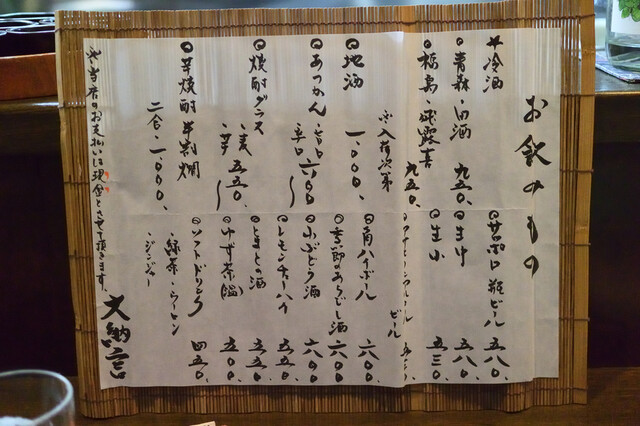 お飲みもの
冷酒
青森・田酒 九五〇、
福島・飛露喜 九五〇、
※入荷次第
地酒 一、〇〇〇、
あつかん・旨口 六〇〇
・辛口
焼酎グラス ・麦 五五〇、
・芋
芋焼酎 半割燗
二合、一、〇〇〇、
サッポロ 瓶ビール 五八〇、
生中 五八〇、
生小 五三〇、
ノンアルコール
ビール
角ハイボール 六〇〇、
あらごし酒 六〇〇
ぶどう酒 六〇〇
レモンチューハイ 五五〇、
とまとの酒 五五〇、
ゆず茶(温) 五〇〇、
ソフトドリンク 四五〇、
・緑茶・ウーロン
・ジンジャー
※当店のお支払いは現金とさせて頂きます。
大納言